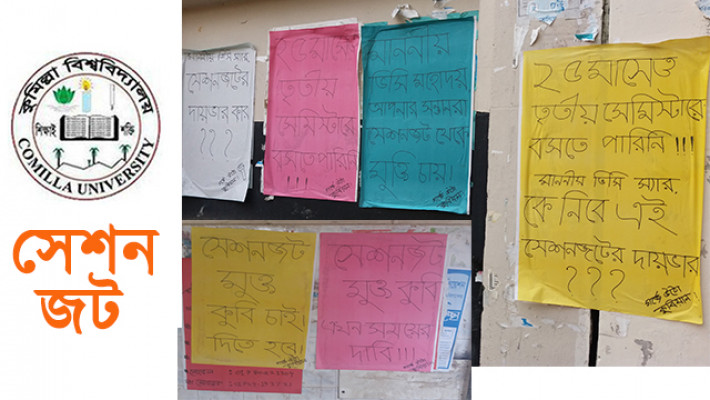 কুমিল্লা বিশ্ববিদ্যালয়
শিক্ষাই শক্তি
COMILLA UNIVERSITY
সেশন
জট
মাননীয় ভিসি স্যার,
সেশনজটের
দায়ভার কার
???
২৫ মাসেও
তৃতীয়
সেমিস্টারে
বসতে পারিনি
!!!!
মাননীয়
ভিসি মহোদয়,
আপনার সন্তানরা
সেশনজট থেকে
মুক্তি চায়।
সেশনজট
মুক্ত
কুবি চাই।
দিতে হবে।
সেশনজট
মুক্ত কুবি
এখন সময়ের
দাবি!!!
২৫ মাসেও
তৃতীয় সেমিস্টারে
বসতে পারিনি!!!
মাননীয় ভিসি স্যার,
কে নিবে এই
সেশনজটের দায়ভার
???